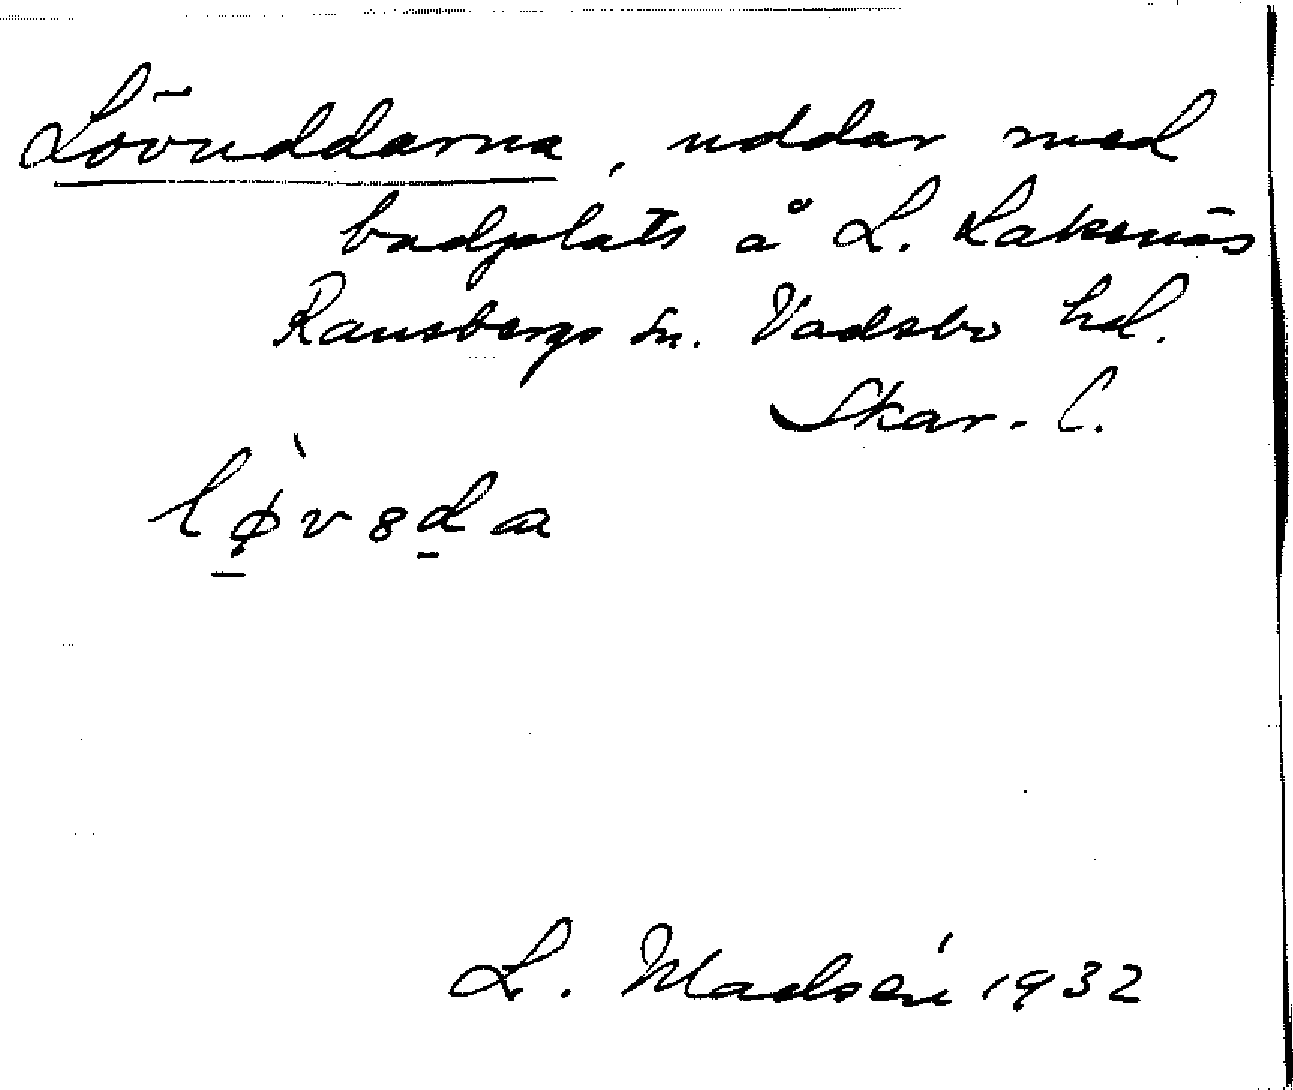 Lövuddarna, uddar med
badplats å L. Laksnäs
Ransbergs sn. Vadsbo hd.
Skar. l.
lø̀v8da
L. Madsén 1932